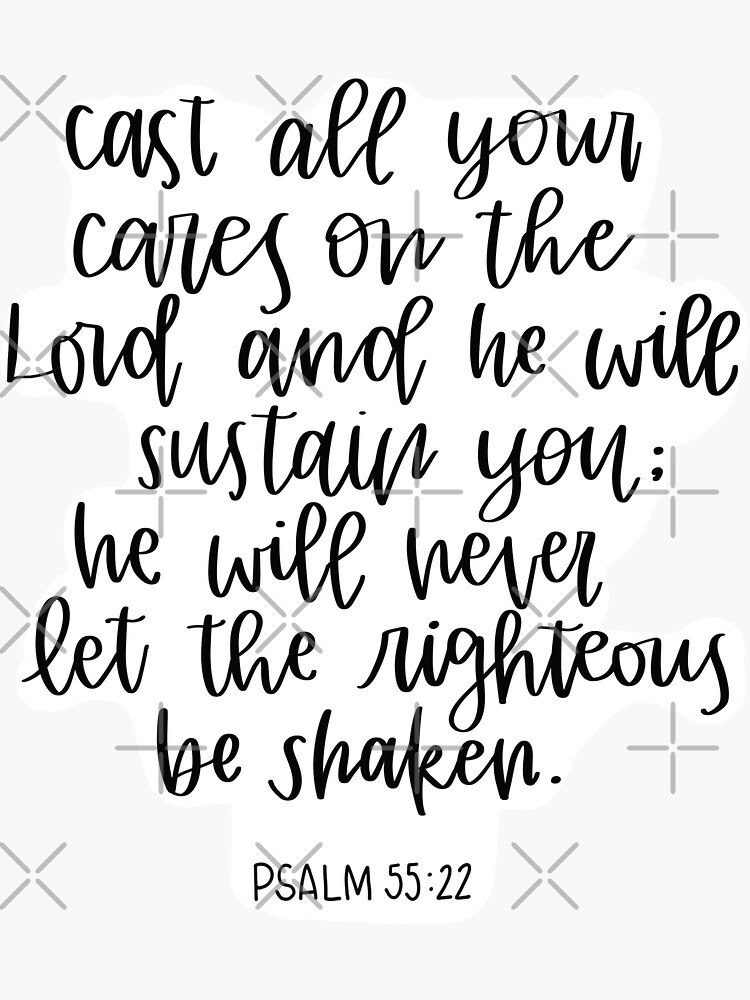 cast all your
cares on the
Lord and he will
sustain you;
he will never
let the righteous
be shaken.
PSALM 55:22